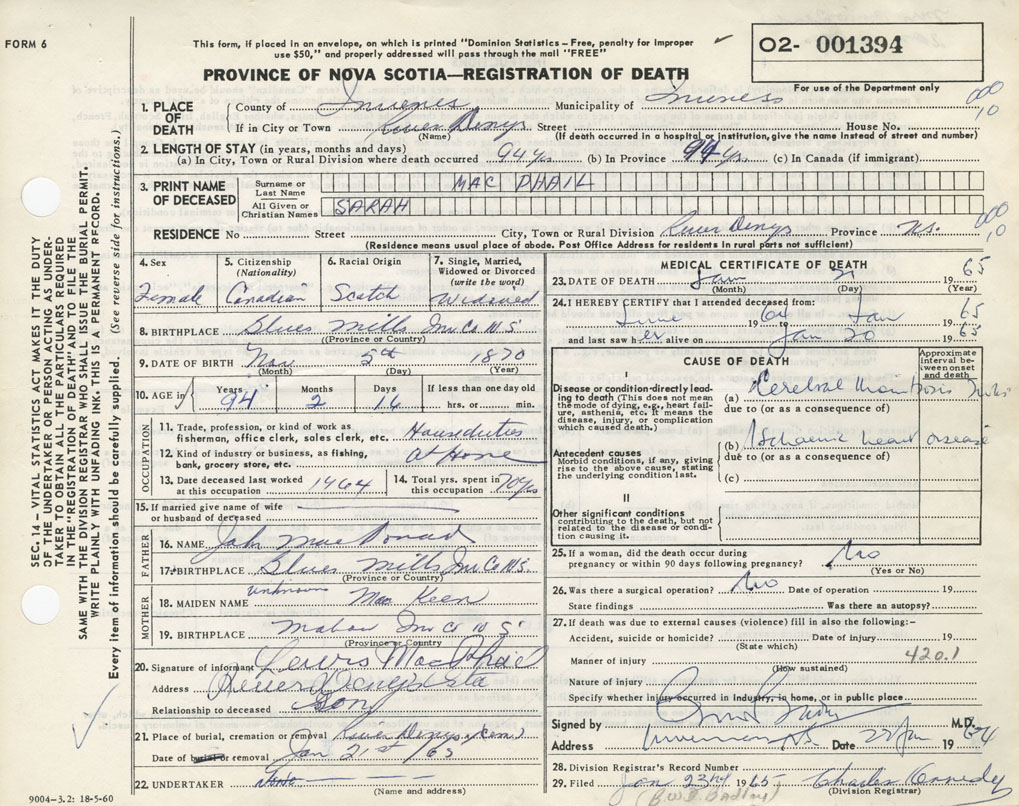 FORM 6
This form, if placed in an envelope, on which is printed "Dominion Statistics – Free, penalty for improper
use $50," and properly addressed will pass through the mail "FREE"
O2- 001394
For use of the Department only
PROVINCE OF NOVA SCOTIA—REGISTRATION OF DEATH
1. PLACE OF DEATH County of Inverness Municipality of Inverness 000
If in City or Town River Denys Street House No. 10
(Name) (If death occurred in a hospital or institution, give the name instead of street and number)
2. LENGTH OF STAY (in years, months and days)
(a) In City, Town or Rural Division where death occurred 94 yrs (b) In Province 94 yrs. (c) In Canada (if immigrant)
3. PRINT NAME OF DECEASED Surname or Last Name MAC PHAIL
All Given or Christian Names SARAH
RESIDENCE No Street City, Town or Rural Division River Denys Province N.S. 000 10
(Residence means usual place of abode. Post Office Address for residents in rural parts not sufficient)
SEC. 14 – VITAL STATISTICS ACT MAKES IT THE DUTY
OF THE UNDERTAKER OR PERSON ACTING AS UNDER-
TAKER TO OBTAIN ALL THE PARTICULARS REQUIRED
IN THE "REGISTRATION OF DEATH" AND TO FILE THE
SAME WITH THE DIVISION REGISTRAR WHO SHALL ISSUE THE BURIAL PERMIT.
WRITE PLAINLY WITH UNFADING INK. THIS IS A PERMANENT RECORD.
Every item of information should be carefully supplied. (See reverse side for instructions.)
4. Sex Female
5. Citizenship (Nationality) Canadian
6. Racial Origin Scotch
7. Single, Married, Widowed or Divorced (write the word) Widowed
8. BIRTHPLACE Blues Mills Inv Co N.S.
(Province or Country)
9. DATE OF BIRTH 5th 1870
(Month) (Day) (Year)
10. AGE in Years 94 Months 2 Days 16 If less than one day old hrs. or min.
OCCUPATION
11. Trade, profession, or kind of work as fisherman, office clerk, sales clerk, etc. Houseduties
12. Kind of industry or business, as fishing, bank, grocery store, etc. At Home
13. Date deceased last worked at this occupation 1964 14. Total yrs. spent in this occupation 70 yrs
15. If married give name of wife or husband of deceased
FATHER
16. NAME John MacDonald
17. BIRTHPLACE Blues Mills Inv Co N.S.
(Province or Country)
MOTHER
18. MAIDEN NAME unknown MacKeen
19. BIRTHPLACE Mabou Inv Co N S
(Province or Country)
20. Signature of informant MacPhail
Address River Denys Sta
Relationship to deceased Son
21. Place of burial, cremation or removal River Denys, Cem.
Date of burial or removal Jan 21st /65
22. UNDERTAKER None
(Name and address)
9004–3.2: 18-5-60
MEDICAL CERTIFICATE OF DEATH
23. DATE OF DEATH Jan 21 1965
(Month) (Day) (Year)
24. I HEREBY CERTIFY that I attended deceased from:
June 1964 to Jan 1965
and last saw her alive on Jan 20 1965
CAUSE OF DEATH
Approximate interval between onset and death
I
Disease or condition-directly leading to death (This does not mean the mode of dying, e.g., heart failure, asthenia, etc. It means the disease, injury, or complication which caused death.)
(a) Cerebral
due to (or as a consequence of)
Antecedent causes
Morbid conditions, if any, giving rise to the above cause, stating the underlying condition last.
(b) Ischaemic heart disease
due to (or as a consequence of)
(c)
II
Other significant conditions
contributing to the death, but not related to the disease or condition causing it.
25. If a woman, did the death occur during pregnancy or within 90 days following pregnancy? No
(Yes or No)
26. Was there a surgical operation? No Date of operation 19
State findings Was there an autopsy?
27. If death was due to external causes (violence) fill in also the following:–
Accident, suicide or homicide? Date of injury 19
(State which)
Manner of injury 420.1
(How sustained)
Nature of injury
Specify whether injury occurred in Industry, in home, or in public place
Signed by M.D.
Address Inverness N.S. Date 22 Jan 1964
28. Division Registrar's Record Number
29. Filed Jan 23rd 1965 Charles Kennedy
(Division Registrar)